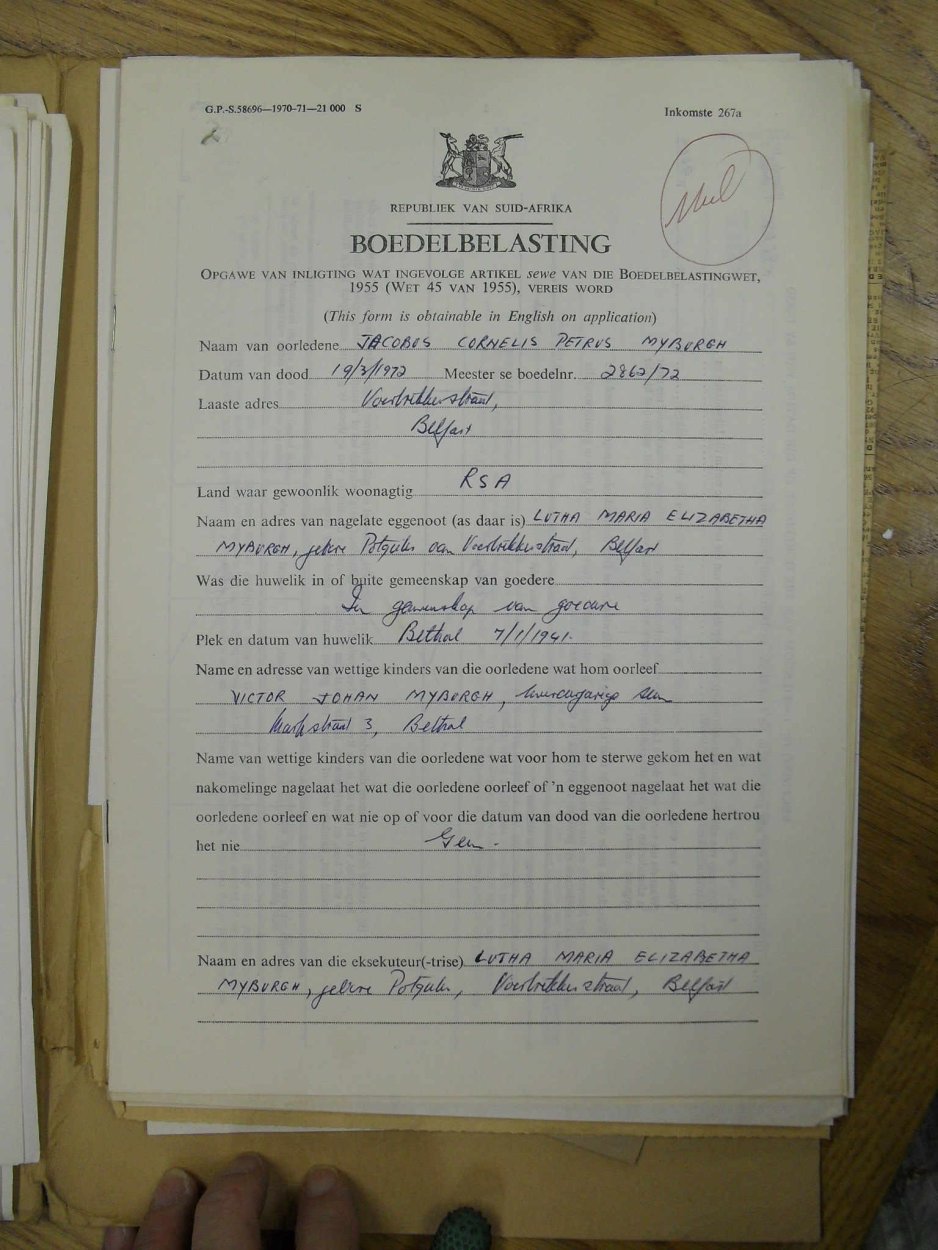 G.P.-S.58696—1970-71—21 000 S
Inkomste 267a
Nil
REPUBLIEK VAN SUID-AFRIKA
BOEDELBELASTING
OPGAWE VAN INLIGTING WAT INGEVOLGE ARTIKEL sewe VAN DIE BOEDELBELASTINGWET,
1955 (WET 45 VAN 1955), VEREIS WORD
(This form is obtainable in English on application)
Naam van oorledene JACOBUS CORNELIS PETRUS MYBURGH
Datum van dood 19/3/1972 Meester se boedelnr. 2862/72
Laaste adres Voortrekkerstraat,
Belfast
Land waar gewoonlik woonagtig RSA
Naam en adres van nagelate eggenoot (as daar is) LUTHA MARIA ELIZABETHA
MYBURGH, gebore Potgieter van Voortrekkerstraat, Belfast
Was die huwelik in of buite gemeenskap van goedere
In gemeenskap van goedere
Plek en datum van huwelik Bethal 7/1/1941.
Name en adresse van wettige kinders van die oorledene wat hom oorleef
VICTOR JOHAN MYBURGH, meerderjarige seun
Markstraat 3, Bethal
Name van wettige kinders van die oorledene wat voor hom te sterwe gekom het en wat
nakomelinge nagelaat het wat die oorledene oorleef of 'n eggenoot nagelaat het wat die
oorledene oorleef en wat nie op of voor die datum van dood van die oorledene hertrou
het nie Geen.
Naam en adres van die eksekuteur(-trise) LUTHA MARIA ELIZABETHA
MYBURGH, gebore Potgieter, Voortrekkerstraat, Belfast